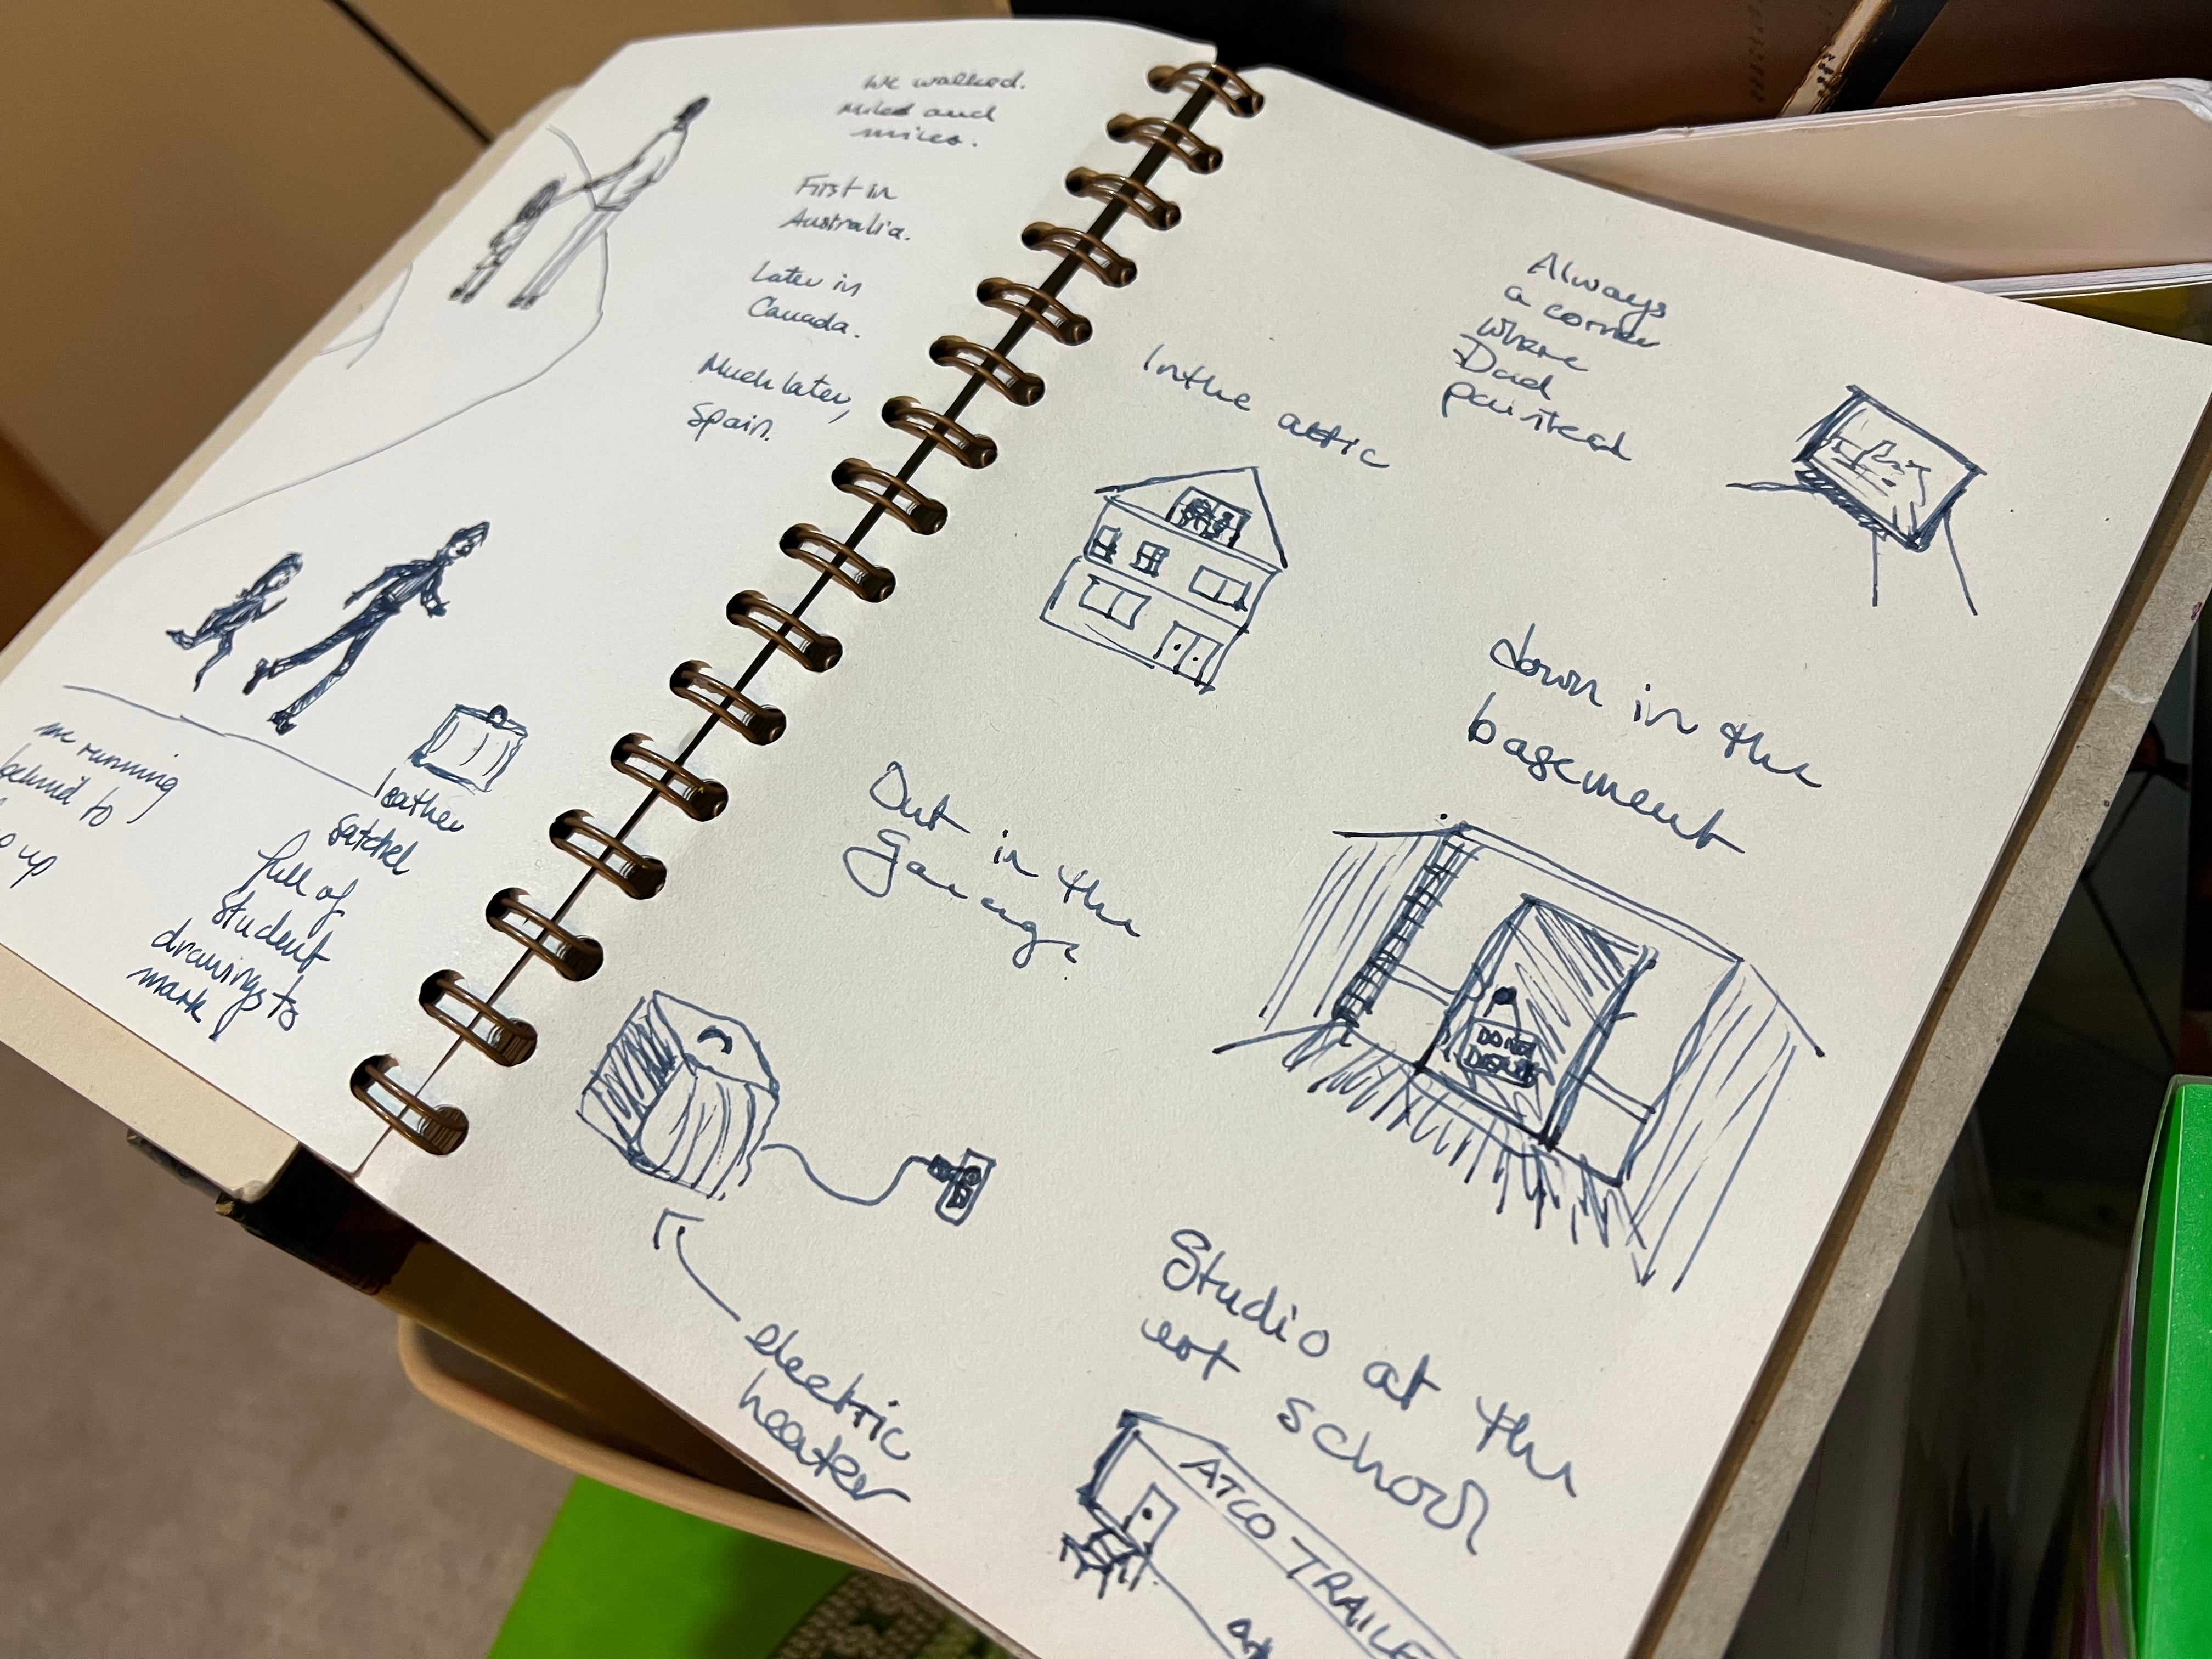 We walked.
Miles and
miles.
First in
Australia.
Later in
Canada.
Much later,
Spain.
me running
behind to
up
leather
satchel
full of
student
drawings to
mark
Always
a corner
where
Dad
painted
In the attic
down in the
basement
Out in the
Garage
DONT
electric
heater
Studio at the
art school
ATCO TRAILE